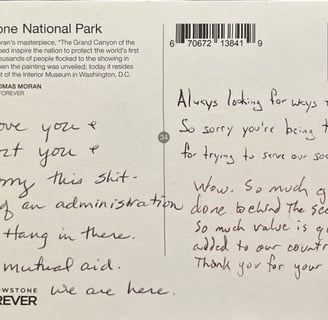 one National Park
ran's masterpiece, "The Grand Canyon of the
ed inspire the nation to protect the world's first
ousands of people flocked to the showing in
en the painting was unveiled; today it resides
t of the Interior Museum in Washington, D.C.
OMAS MORAN
FOREVER
6 70672 13841 9
34
ove you &
rt you &
this shit-
of an administration
Hang in there.
mutual aid.
we are here.
OWSTONE
REVER
Always looking for ways t
So sorry you're being t
for trying to serve our so
Wow. So much g
done behind the sce
so much value is
added to our countr
Thank you for your